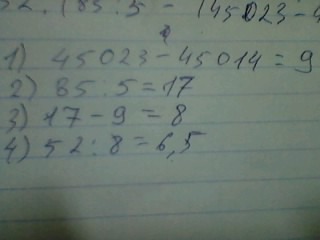 52:(85:5-(45023-4
1) 45023-45014=9
2) 85:5=17
3) 17-9=8
4) 52:8=6,5